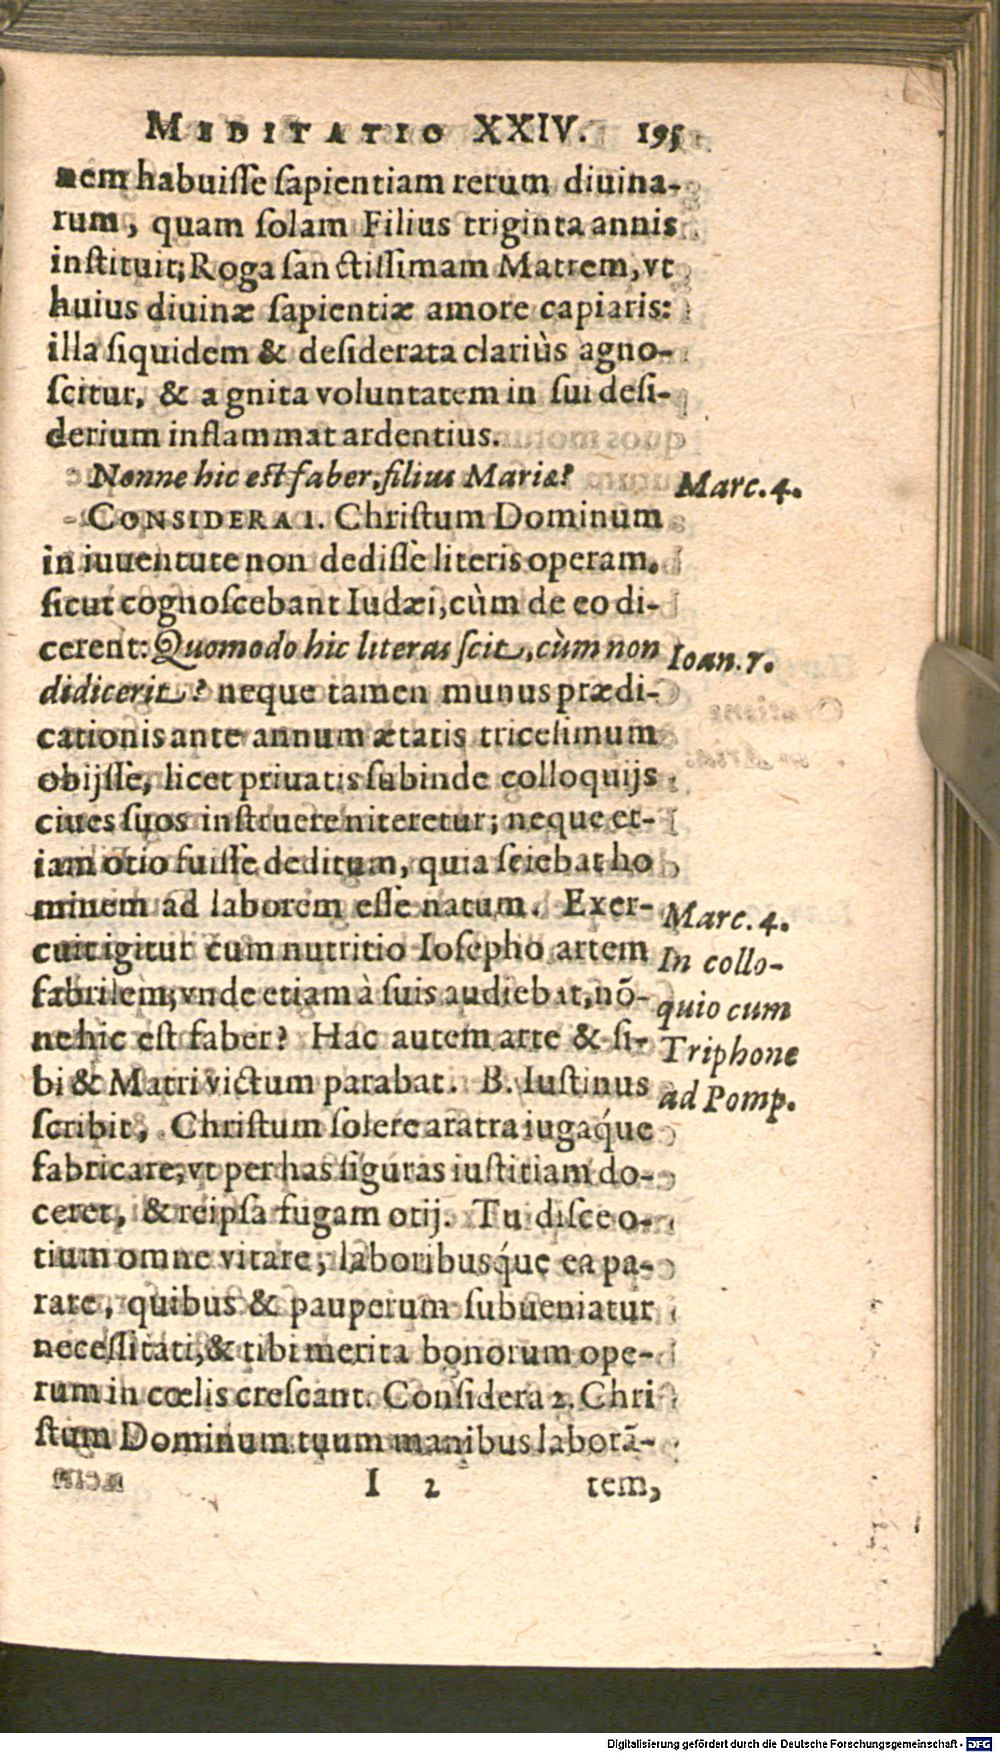 MEDITATIO XXIV. 195
nem habuiſſe ſapientiam rerum diuina-
rum, quam ſolam Filius triginta annis
inſtituit; Roga ſanctiſſimam Matrem, vt
huius diuinæ ſapientiæ amore capiaris:
illa ſiquidem & deſiderata clariùs agno-
ſcitur, & agnita voluntatem in ſui deſi-
derium inflammat ardentius.
Nonne hic eſt faber, filius Mariæ? Marc. 4.
CONSIDERA 1. Chriſtum Dominum
in iuuentute non dediſſe literis operam.
ſicut cognoſcebant Iudæi, cùm de eo di-
cerent: Quomodo hic literas ſcit, cùm non Ioan. 7.
didicerit? neque tamen munus prædi-
cationis ante annum ætatis triceſimum
obijſſe, licet priuatis ſubinde colloquijs
ciues ſuos inſtruere niteretur; neque et-
iam otio fuiſſe deditum, quia ſciebat ho
minem ad laborem eſſe natum. Exer- Marc. 4.
cuit igitur cum nutritio Ioſepho artem In collo-
fabrilem; vnde etiam à ſuis audiebat, nõ- quio cum
ne hic eſt faber? Hac autem arte & ſi- Triphone
bi & Matri victum parabat. B. Iuſtinus ad Pomp.
ſcribit, Chriſtum ſolere aratra iugaq́ue
fabricare, vt per has figuras iuſtitiam do-
ceret, & reipſa fugam otij. Tu diſce o-
tium omne vitare, laboribusq́ue ea pa-
rare, quibus & pauperum ſubueniatur
neceſſitati, & tibi merita bonorum ope-
rum in cœlis creſcant. Conſidera 2. Chri
ſtum Dominum tuum manibus laborã-
I 2 tem,
Digitalisierung gefördert durch die Deutsche Forschungsgemeinschaft - DFG